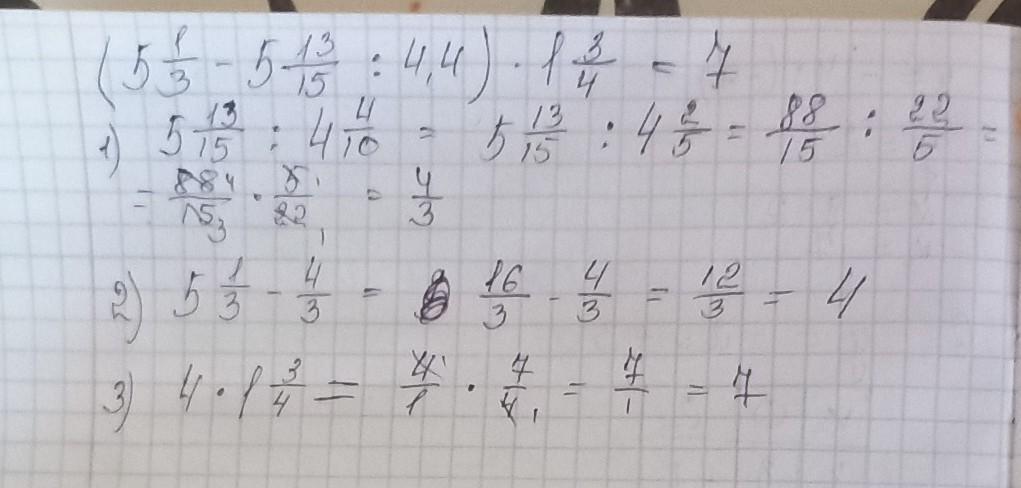 (5 1/3 - 5 13/15 : 4,4) · 1 3/4 = 7
1) 5 13/15 : 4 4/10 = 5 13/15 : 4 2/5 = 88/15 : 22/5 =
= 88 4/15 3 · 5 1/22 1 = 4/3
2) 5 1/3 - 4/3 = 16/3 - 4/3 = 12/3 = 4
3) 4 · 1 3/4 = 4 1/1 · 7/4 1 = 7/1 = 7